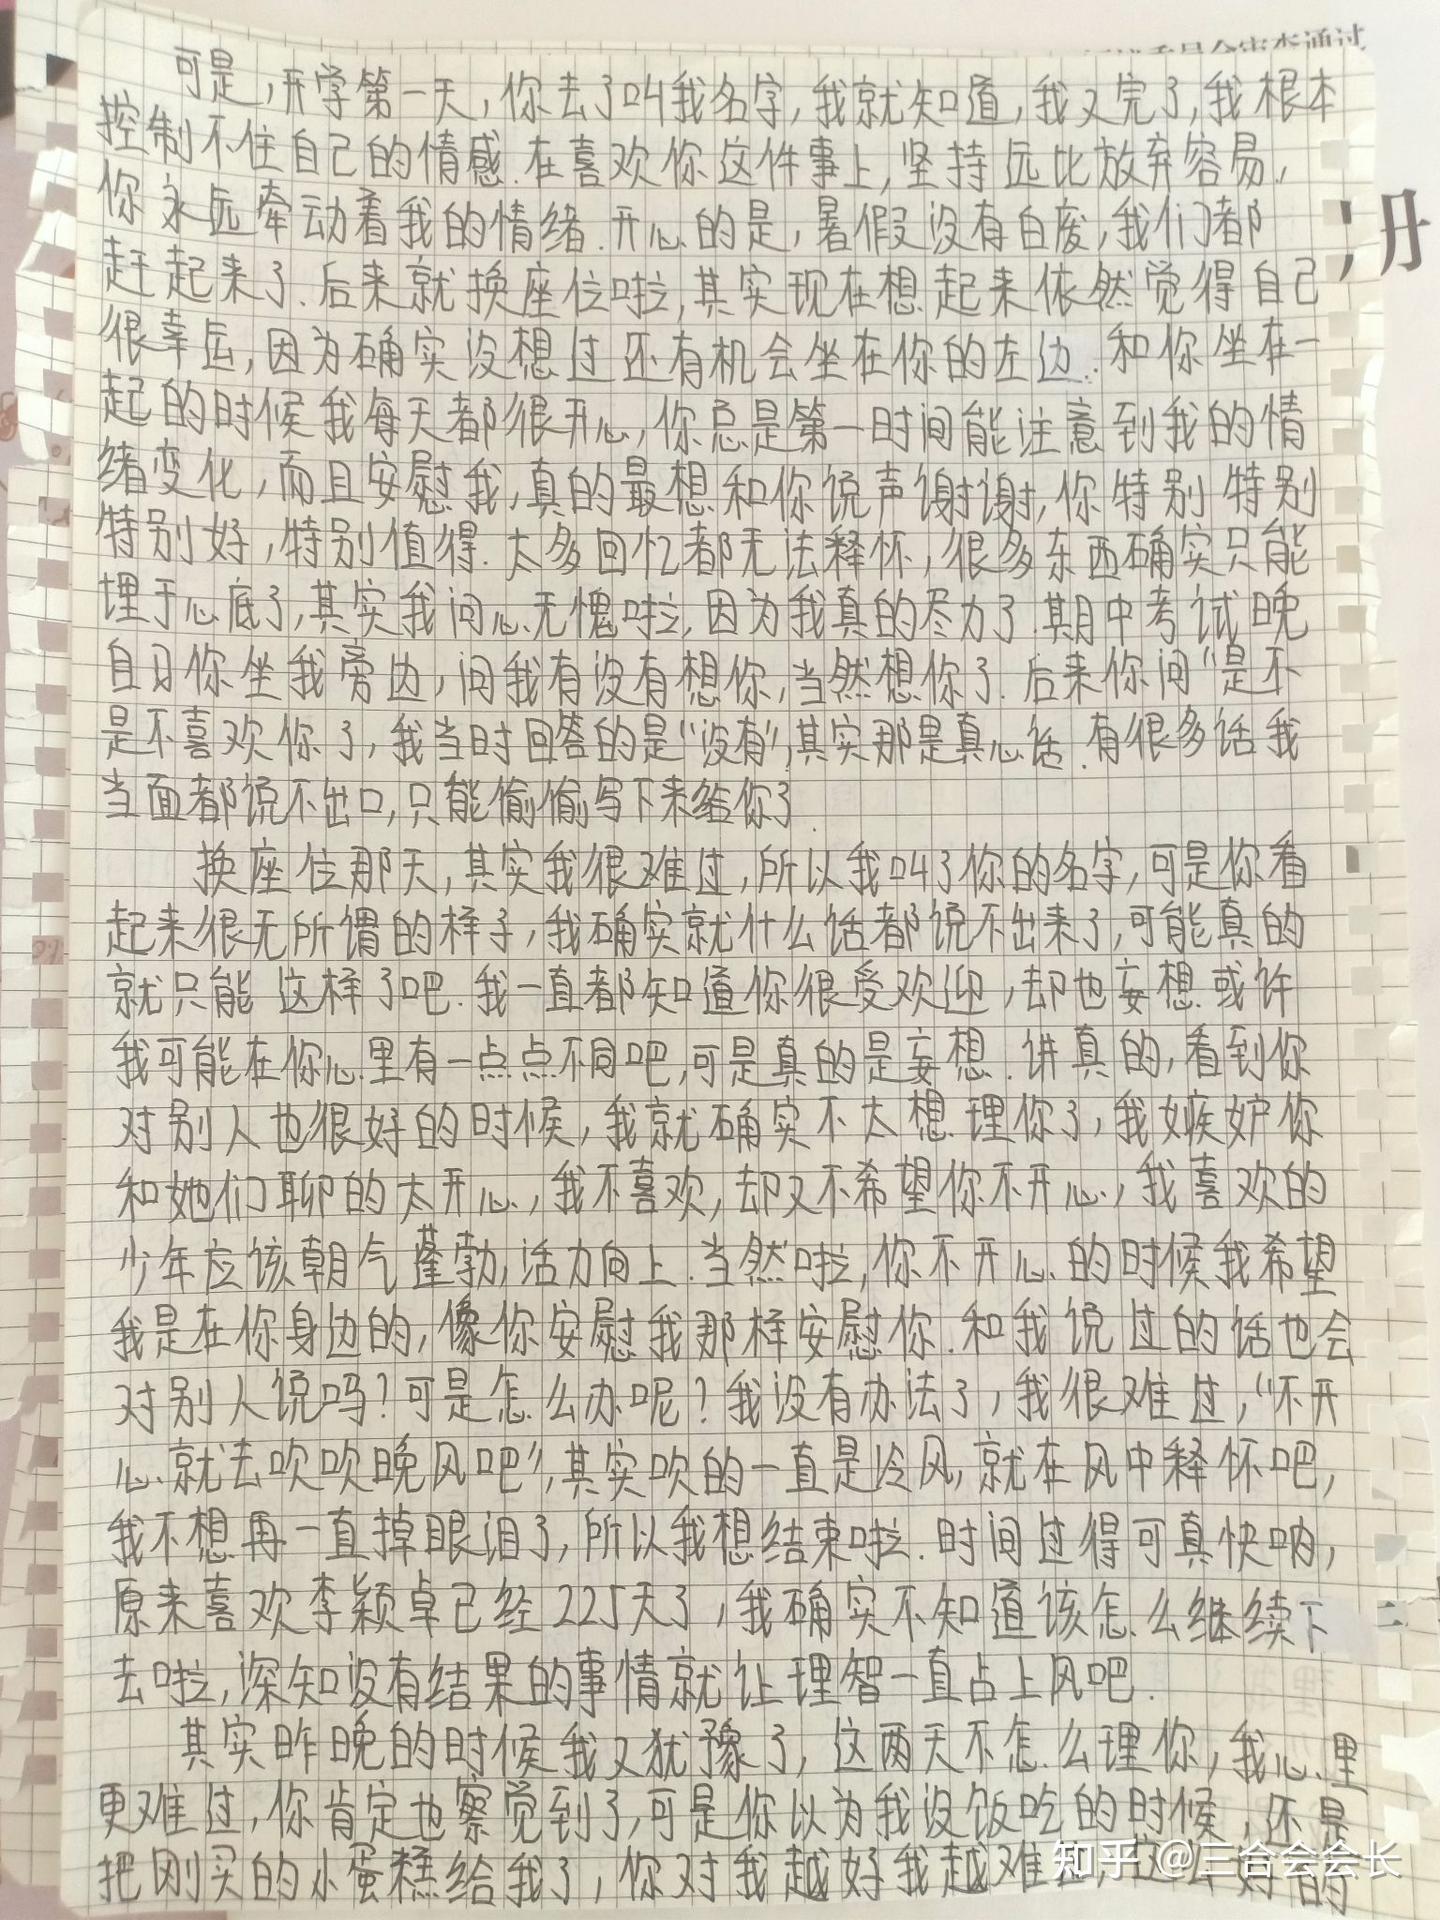 委员会审查通过
册
可是,开学第一天,你去了叫我名字,我就知道,我又完了,我根本
控制不住自己的情感.在喜欢你这件事上,坚持远比放弃容易,
你永远牵动着我的情绪.开心的是,暑假没有白废,我们都
赶起来了.后来就换座位啦,其实现在想起来依然觉得自己
很幸运,因为确实没想过还有机会坐在你的左边.和你坐在一
起的时候我每天都很开心,你总是第一时间能注意到我的情
绪变化,而且安慰我,真的最想和你说声谢谢,你特别特别
特别好,特别值得.太多回忆都无法释怀,很多东西确实只能
埋于心底了,其实我问心无愧啦,因为我真的尽力了.期中考试晚
自习你坐我旁边,问我有没有想你,当然想你了.后来你问“是不
是不喜欢你了,我当时回答的是“没有”,其实那是真心话.有很多话我
当面都说不出口,只能偷偷写下来给你了.
换座位那天,其实我很难过,所以我叫了你的名字,可是你看
起来很无所谓的样子,我确实就什么话都说不出来了,可能真的
就只能这样了吧.我一直都知道你很受欢迎,却也妄想或许
我可能在你心里有一点点不同吧,可是真的是妄想.讲真的,看到你
对别人也很好的时候,我就确实不太想理你了,我嫉妒你
和她们聊的太开心,我不喜欢,却又不希望你不开心,我喜欢的
少年应该朝气蓬勃,活力向上.当然啦,你不开心的时候我希望
我是在你身边的,像你安慰我那样安慰你.和我说过的话也会
对别人说吗?可是怎么办呢?我没有办法了,我很难过,“不开
心就去吹吹晚风吧”,其实吹的一直是冷风,就在风中释怀吧,
我不想再一直掉眼泪了,所以我想结束啦.时间过得可真快呐,
原来喜欢李颖卓已经225天了,我确实不知道该怎么继续下
去啦,深知没有结果的事情就让理智一直占上风吧.
其实昨晚的时候我又犹豫了,这两天不怎么理你,我心里
更难过,你肯定也察觉到了,可是你以为我没饭吃的时候,还是
把刚买的小蛋糕给我了,你对我越好我越难过,这么好的
知乎 @三合会会长